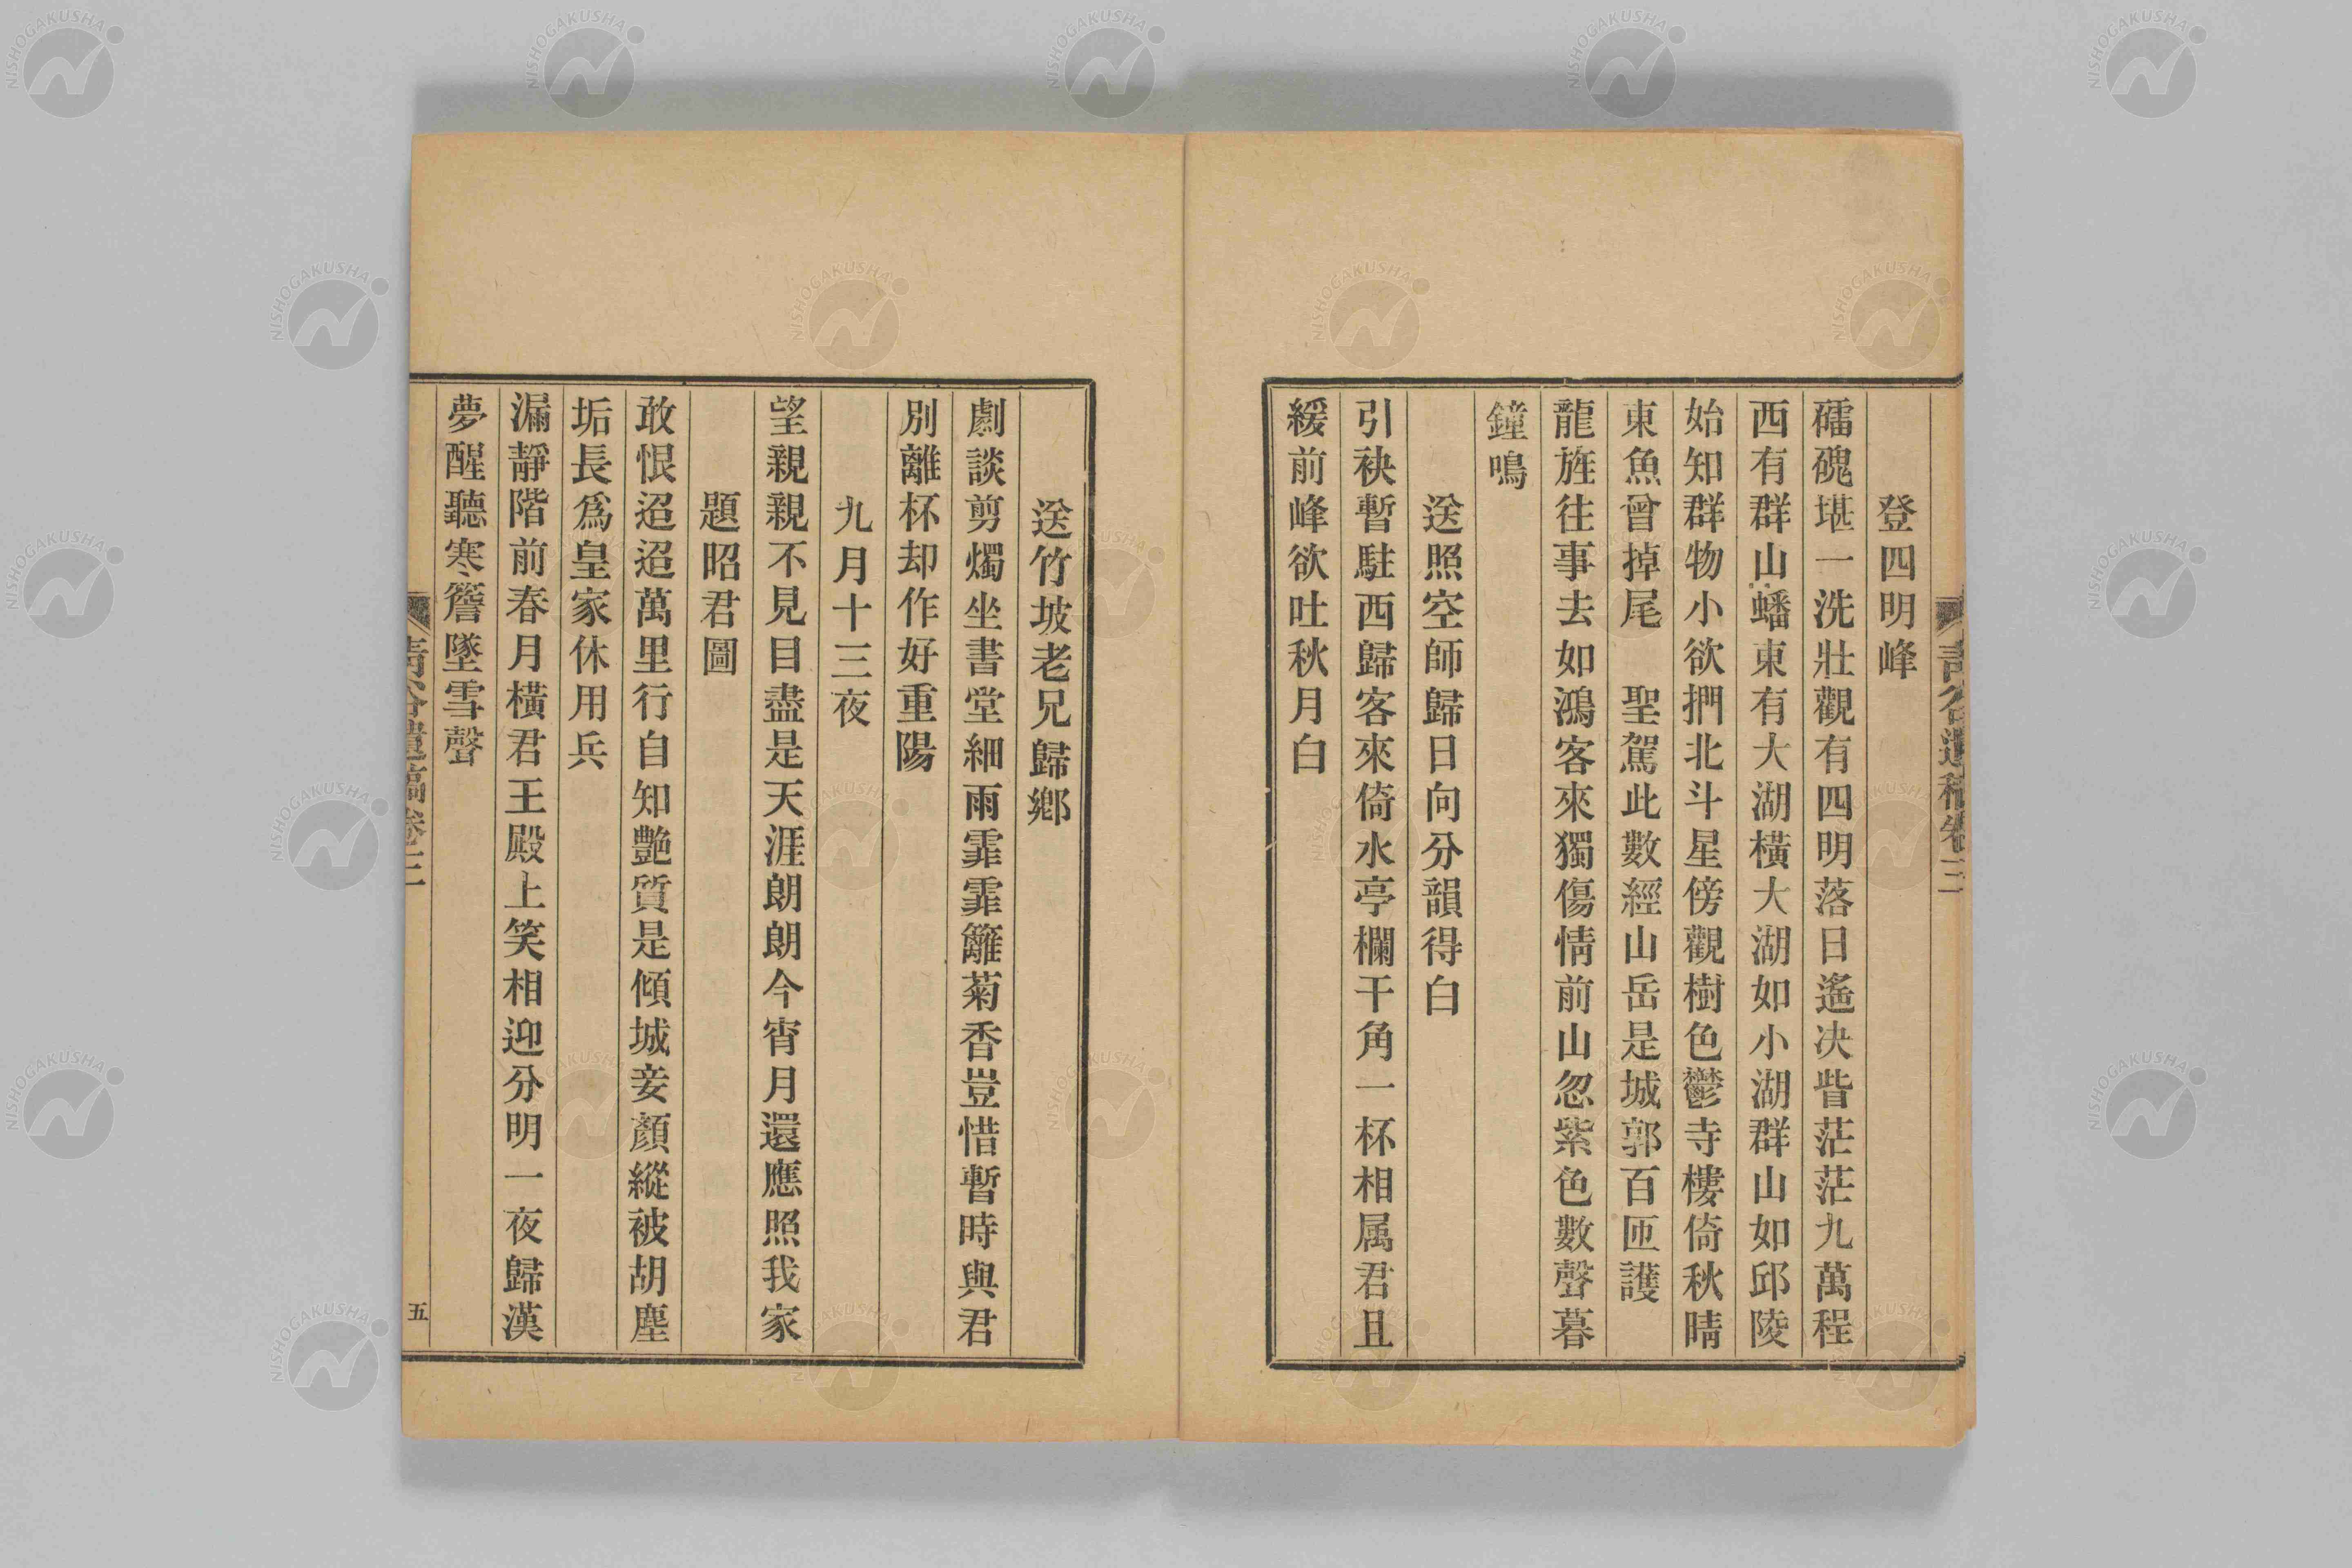 登四明峰
礌磈堪一洗壯觀有四明落日遙决眥茫茫九萬程
西有群山蟠東有大湖橫大湖如小湖群山如邱陵
始知群物小欲捫北斗星傍觀樹色鬱寺樓倚秋晴
東魚曾掉尾　聖駕此數經山岳是城郭百匝護
龍旌往事去如鴻客來獨傷情前山忽紫色數聲暮
鐘鳴
送照空師歸日向分韻得白
引袂暫駐西歸客來倚水亭欄干角一杯相属君且
緩前峰欲吐秋月白
送竹坡老兄歸鄉
劇談剪燭坐書堂細雨霏霏籬菊香豈惜暫時與君
別離杯却作好重陽
九月十三夜
望親親不見目盡是天涯朗朗今宵月還應照我家
題昭君圖
敢恨迢迢萬里行自知艶質是傾城妾顏縱被胡塵
垢長爲皇家休用兵
漏靜階前春月橫君王殿上笑相迎分明一夜歸漢
夢醒聽寒簷墜雪聲
遺稿卷三
五
NISHOGAKUSHA